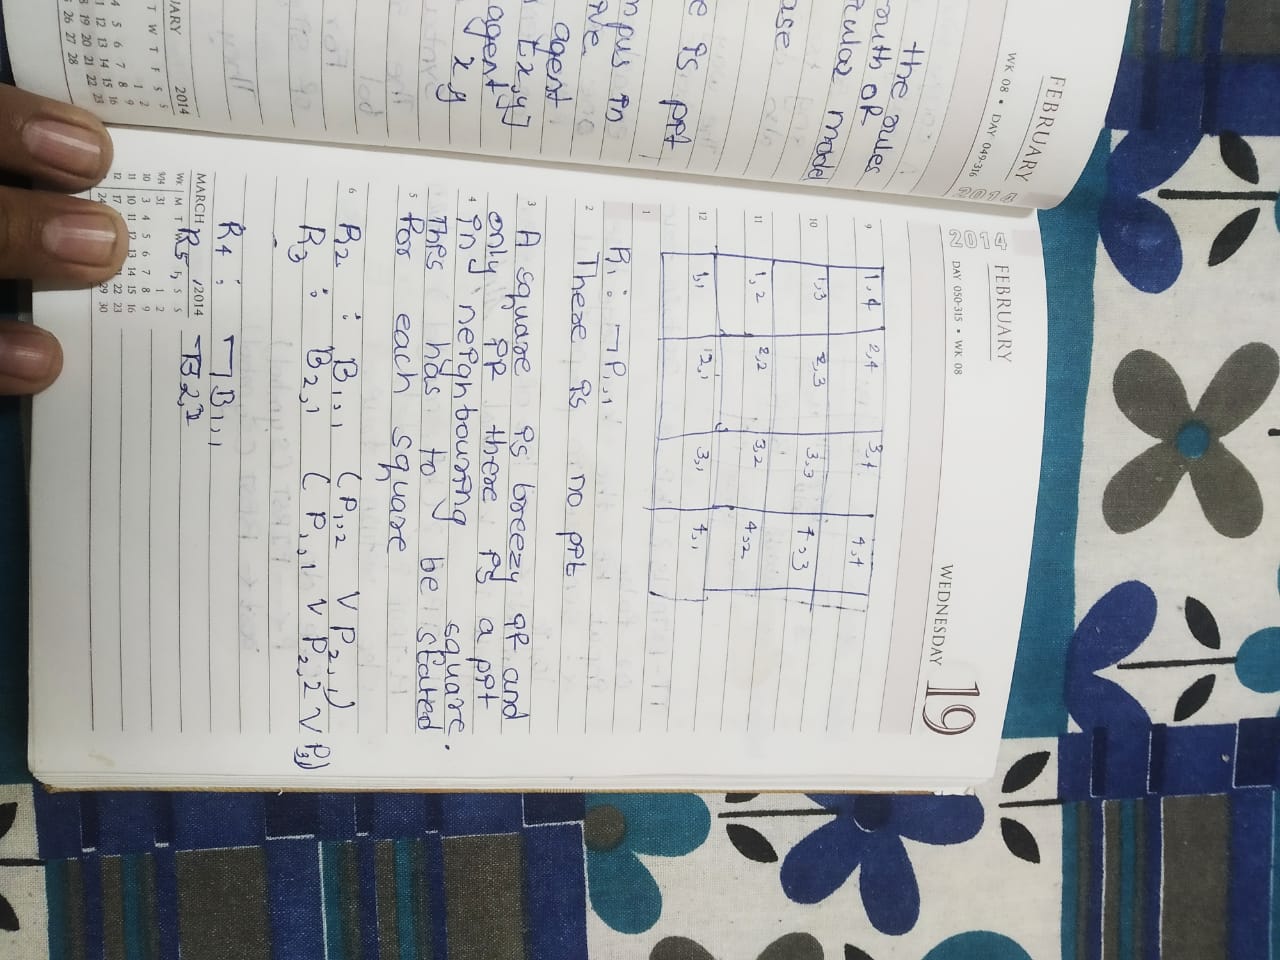 FEBRUARY
WK 08 • DAY 049-316
2014
the rules
ruth of
model
ase
e is pit
mpus in
ive
agent
[x,y]
agent
x y
UARY 2014
T W T F S S
1 2
4 5 6 7 8 9
11 12 13 14 15 16
18 19 20 21 22 23
26 27 28
2014
FEBRUARY
DAY 050-315 • WK 08
WEDNESDAY 19
9 1,4 2,4 3,4 4,4
10 1,3 2,3 3,3 4,3
11 1,2 2,2 3,2 4,2
12 1,1 2,1 3,1 4,1
1
R1 : ¬P1,1
2 There is no pit
3 A square is breezy if and
only if there is a pit
4 in neighbouring square.
This has to be stated
5 for each square
6 R2 : B1,1 (P1,2 ∨ P2,1)
R3 : B2,1 (P1,1 ∨ P2,2 ∨ P3,1)
R4 : ¬B1,1
MARCH 2014
R5,
WK M T W F S S
9/14 31 1 2
10 3 4 5 6 7 8 9
11 10 11 12 13 14 15 16
12 17 21 22 23
24 29 30